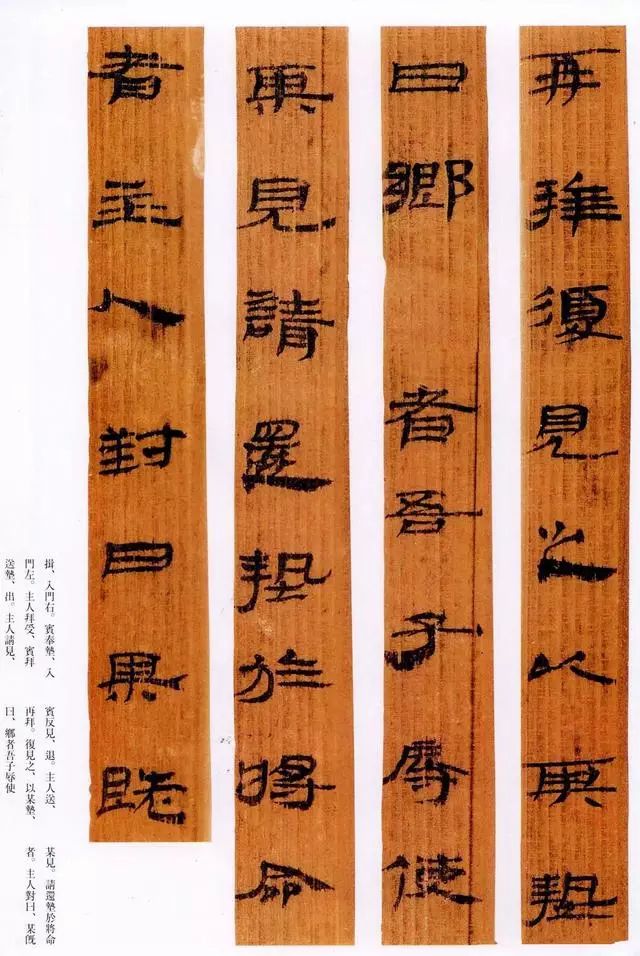 再拜復見之以某墊
曰鄉者吾子辱使
某見請還墊於將命
者主人對曰某既
揖、入門右。賓奉墊、入
門左。主人拜受、賓拜
送墊、出。主人請見、
賓反見、退。主人送、
再拜。復見之、以某墊、
曰、鄉者吾子辱使
某見。請還墊於將命
者。主人對曰、某既